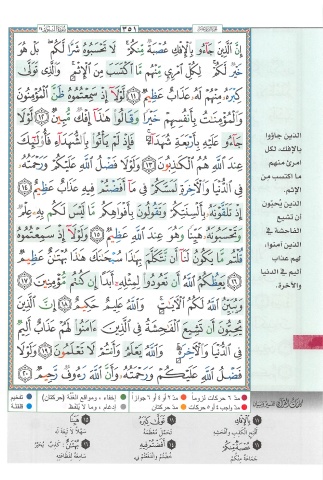 ٣٥١
إِنَّ ٱلَّذِينَ جَآءُو بِٱلْإِفْكِ عُصْبَةٌ مِّنكُمْ ۚ لَا تَحْسَبُوهُ شَرًّا لَّكُم ۖ بَلْ هُوَ
خَيْرٌ لَّكُمْ ۚ لِكُلِّ ٱمْرِئٍ مِّنْهُم مَّا ٱكْتَسَبَ مِنَ ٱلْإِثْمِ ۚ وَٱلَّذِى تَوَلَّىٰ
كِبْرَهُۥ مِنْهُمْ لَهُۥ عَذَابٌ عَظِيمٌ ١١ لَّوْلَآ إِذْ سَمِعْتُمُوهُ ظَنَّ ٱلْمُؤْمِنُونَ
وَٱلْمُؤْمِنَٰتُ بِأَنفُسِهِمْ خَيْرًا وَقَالُوا۟ هَٰذَآ إِفْكٌ مُّبِينٌ ١٢ لَّوْلَا
جَآءُو عَلَيْهِ بِأَرْبَعَةِ شُهَدَآءَ ۚ فَإِذْ لَمْ يَأْتُوا۟ بِٱلشُّهَدَآءِ فَأُو۟لَٰٓئِكَ
عِندَ ٱللَّهِ هُمُ ٱلْكَٰذِبُونَ ١٣ وَلَوْلَا فَضْلُ ٱللَّهِ عَلَيْكُمْ وَرَحْمَتُهُۥ
فِى ٱلدُّنْيَا وَٱلْءَاخِرَةِ لَمَسَّكُمْ فِى مَآ أَفَضْتُمْ فِيهِ عَذَابٌ عَظِيمٌ ١٤
إِذْ تَلَقَّوْنَهُۥ بِأَلْسِنَتِكُمْ وَتَقُولُونَ بِأَفْوَاهِكُم مَّا لَيْسَ لَكُم بِهِۦ عِلْمٌ
وَتَحْسَبُونَهُۥ هَيِّنًا وَهُوَ عِندَ ٱللَّهِ عَظِيمٌ ١٥ وَلَوْلَآ إِذْ سَمِعْتُمُوهُ
قُلْتُم مَّا يَكُونُ لَنَآ أَن نَّتَكَلَّمَ بِهَٰذَا سُبْحَٰنَكَ هَٰذَا بُهْتَٰنٌ عَظِيمٌ
١٦ يَعِظُكُمُ ٱللَّهُ أَن تَعُودُوا۟ لِمِثْلِهِۦٓ أَبَدًا إِن كُنتُم مُّؤْمِنِينَ ١٧
وَيُبَيِّنُ ٱللَّهُ لَكُمُ ٱلْءَايَٰتِ ۚ وَٱللَّهُ عَلِيمٌ حَكِيمٌ ١٨ إِنَّ ٱلَّذِينَ
يُحِبُّونَ أَن تَشِيعَ ٱلْفَٰحِشَةُ فِى ٱلَّذِينَ ءَامَنُوا۟ لَهُمْ عَذَابٌ أَلِيمٌ
فِى ٱلدُّنْيَا وَٱلْءَاخِرَةِ ۚ وَٱللَّهُ يَعْلَمُ وَأَنتُمْ لَا تَعْلَمُونَ ١٩ وَلَوْلَا
فَضْلُ ٱللَّهِ عَلَيْكُمْ وَرَحْمَتُهُۥ وَأَنَّ ٱللَّهَ رَءُوفٌ رَّحِيمٌ ٢٠
الذين جاؤوا
بالإفك، لكل
امرئ منهم
ما اكتسب من
الإثم.
الذين يُحبّون
أن تشيع
الفاحشة في
الذين آمنوا،
لهم عذاب
أليم في الدنيا
والآخرة.
مدّ ٦ حركات لزوماً مدّ ٢ أو ٤ أو ٦ جوازاً إخفاء، ومواقع الغُنّة (حركتان) تفخيم
مدّ واجب ٤ أو ٥ حركات مدّ حركتان إدغام، وما لا يُلفظ قلقلة